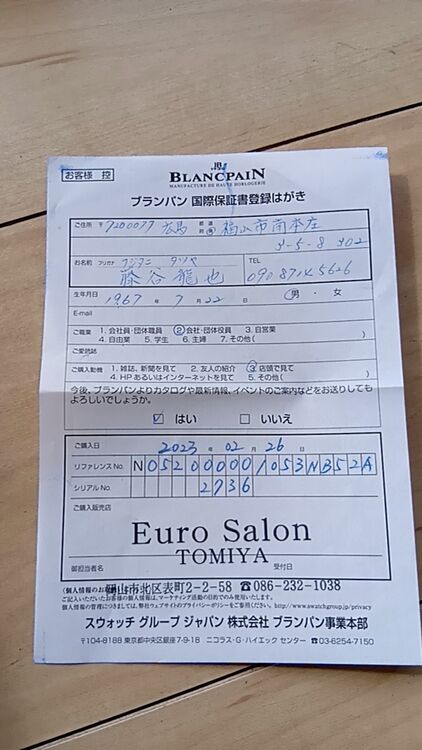 お客様 控
JB
BLANCPAIN
MANUFACTURE DE HAUTE HORLOGERIE
ブランパン 国際保証書登録はがき
ご住所 〒7200077 広島 都道府県 福山市南本庄
3-5-8 302
フリガナ フジタニ タツヤ
お名前 藤谷龍也 TEL
生年月日 1967 年 7 月 22 日 男・女
E-mail
ご職業 1. 会社員・団体職員 ②会社・団体役員 3. 自営業
4. 自由業 5. 学生 6. 主婦 7. その他( )
ご愛読誌
ご購入動機 1. 雑誌、新聞を見て 2. 友人の紹介 ③店頭で見て
4. HPあるいはインターネットを見て 5. その他( )
今後、ブランパンよりカタログや最新情報、イベントのご案内などをお送りしても
よろしいでしょうか。
☑ はい □ いいえ
ご購入日 2023 年 02 月 26 日
リファレンスNo. N05200000/053NB52A
シリアルNo. 2736
ご購入販売店
Euro Salon
TOMIYA
御担当者名 受付日
(個人情報のお
山市北区表町2-2-58 ☎086-232-1038
ご記入いただいたお客様の個人情報は、マーケティング活動の目的でのみ使用いたします。
個人情報の管理につきましては、弊社ウェブサイトのプライバシーポリシーをご参照ください。http://www.swatchgroup.jp/privacy
スウォッチ グループ ジャパン 株式会社 ブランパン事業本部
〒104-8188 東京都中央区銀座7-9-18 ニコラス・G・ハイエック センター ☎03-6254-7150